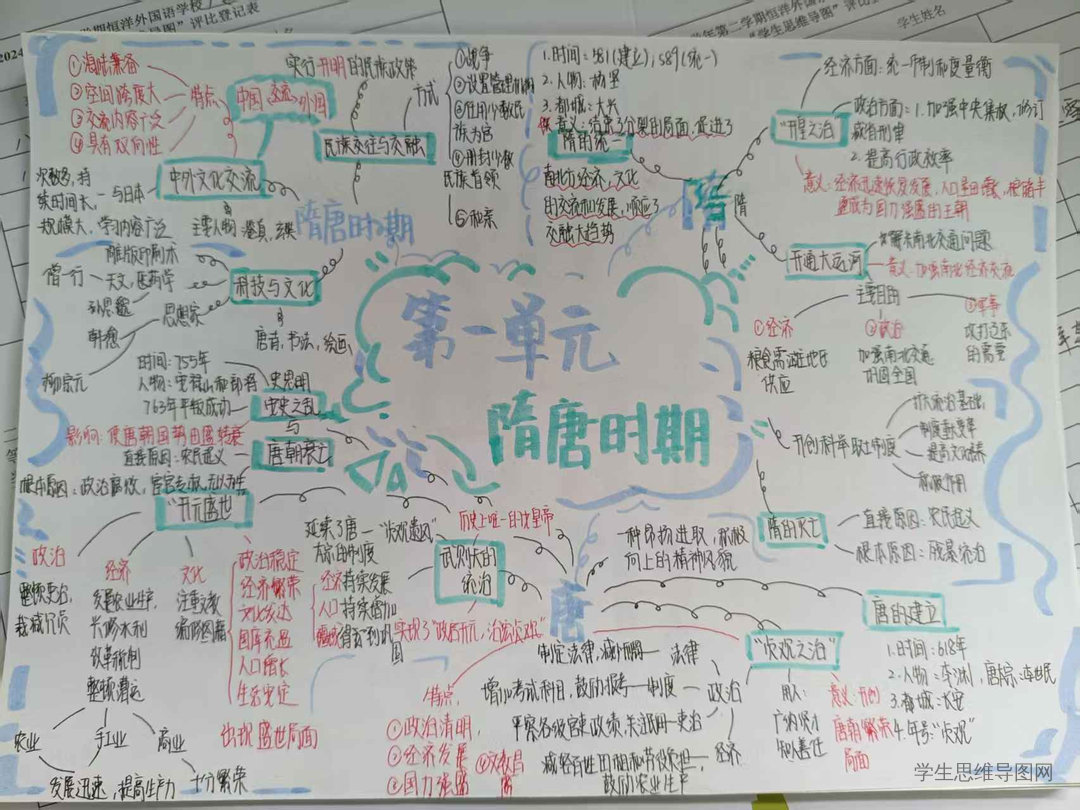 2024
学期恒洋外国语学校
导图”评比登记表
年第二学期恒洋外国
“学生思维导图”评比
学生姓名
第一单元
隋唐时期
隋唐时期
隋
隋
唐
隋的统一
1.时间:581(建立),589(统一)
2.人物:杨坚
3.都城:大兴
意义:结束了分裂的局面,促进了
南北方经济,文化
的交流和发展,顺应了
交融大趋势
“开皇之治”
经济方面:统一币制和度量衡
政治方面:1.加强中央集权,修订
2.提高行政效率
意义:经济迅速恢复发展,人口显著
盛成为国力强盛的王朝
开通大运河
南北交通问题
意义:加强南北经济交流
主要目的
①经济
粮食需
供应
②政治
加强南北交通
巩固全国
③军事
攻打辽东
的需要
开创科举取士制度
提高文化
积极作用
隋的灭亡
直接原因:农民起义
根本原因:残暴统治
唐的建立
1.时间:618年
2.人物:李渊,唐
3.都城:长安
4.年号:“贞观”
“贞观之治”
制定法律,减
法律
增加考试科目,鼓励报考—制度
政治
考察各级官吏政绩
减轻百姓
经济
鼓励农业生产
用人:
广纳贤才
知人善任
意义:开创
唐朝繁荣
局面
特点:
①政治清明,
②经济发展
③国力强盛
④文教昌
武则天的
统治
历史上唯一的女皇帝
延续了唐
的制度
“贞观遗风”
经济持续发展
人口持续增加
实现了“政启开元,治宏贞观”
一种昂扬进取,积极
向上的精神风貌
“开元盛世”
政治
整顿吏治,
裁减冗员
经济
发展农业生产,
兴修水利
改革税制
整顿漕运
文化
注重文教
编修图籍
政治稳定
经济繁荣
文化发达
国库充盈
人口增长
生活安定
出现盛世局面
农业
手工业
商业
发展迅速,提高生产力
十分繁荣
安史之乱
与
唐朝衰亡
时间:755年
人物:安禄山和部将
史思明
763年平叛成功
影响:使唐朝国势由盛转衰
直接原因:农民起义
根本原因:政治腐败,宦官专权
科技与文化
雕版印刷术
僧一行—天文,医药学
孙思邈
思想家
韩愈
柳宗元
唐诗,书法,绘画,
中外文化交流
中国交流外国
特点
①海陆兼备
②空间跨度大
③交流内容广泛
④具有双向性
次数多,持
续时间长,
规模大,学习内容广泛
与日本
主要人物:鉴真,玄奘
民族交往与交融
实行开明的民族政策
方式
①战争
②设置管理机构
③任用少数民
族为官
④册封少数
民族首领
⑤和亲
学生思维导图网